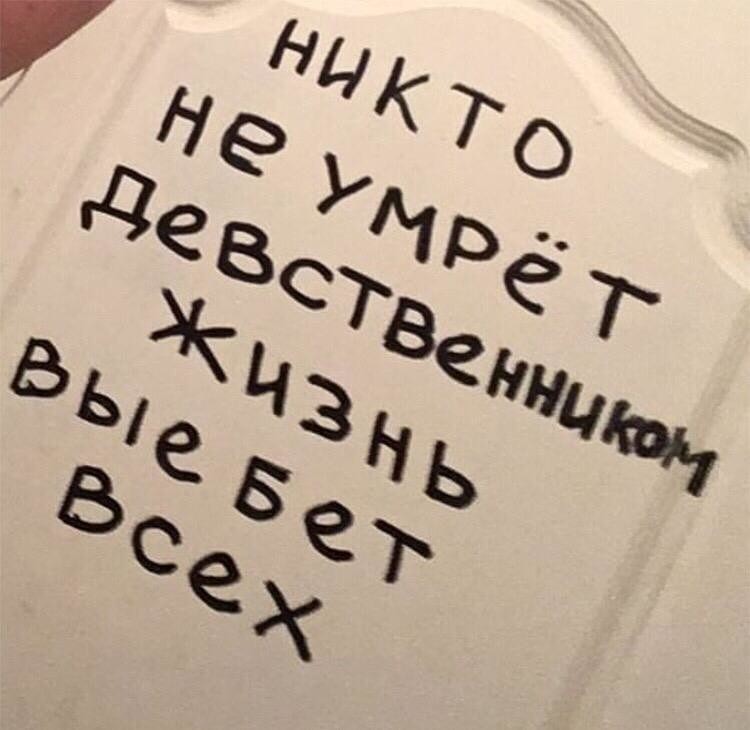 никто
не умрёт
девственником
жизнь
выебет
всех